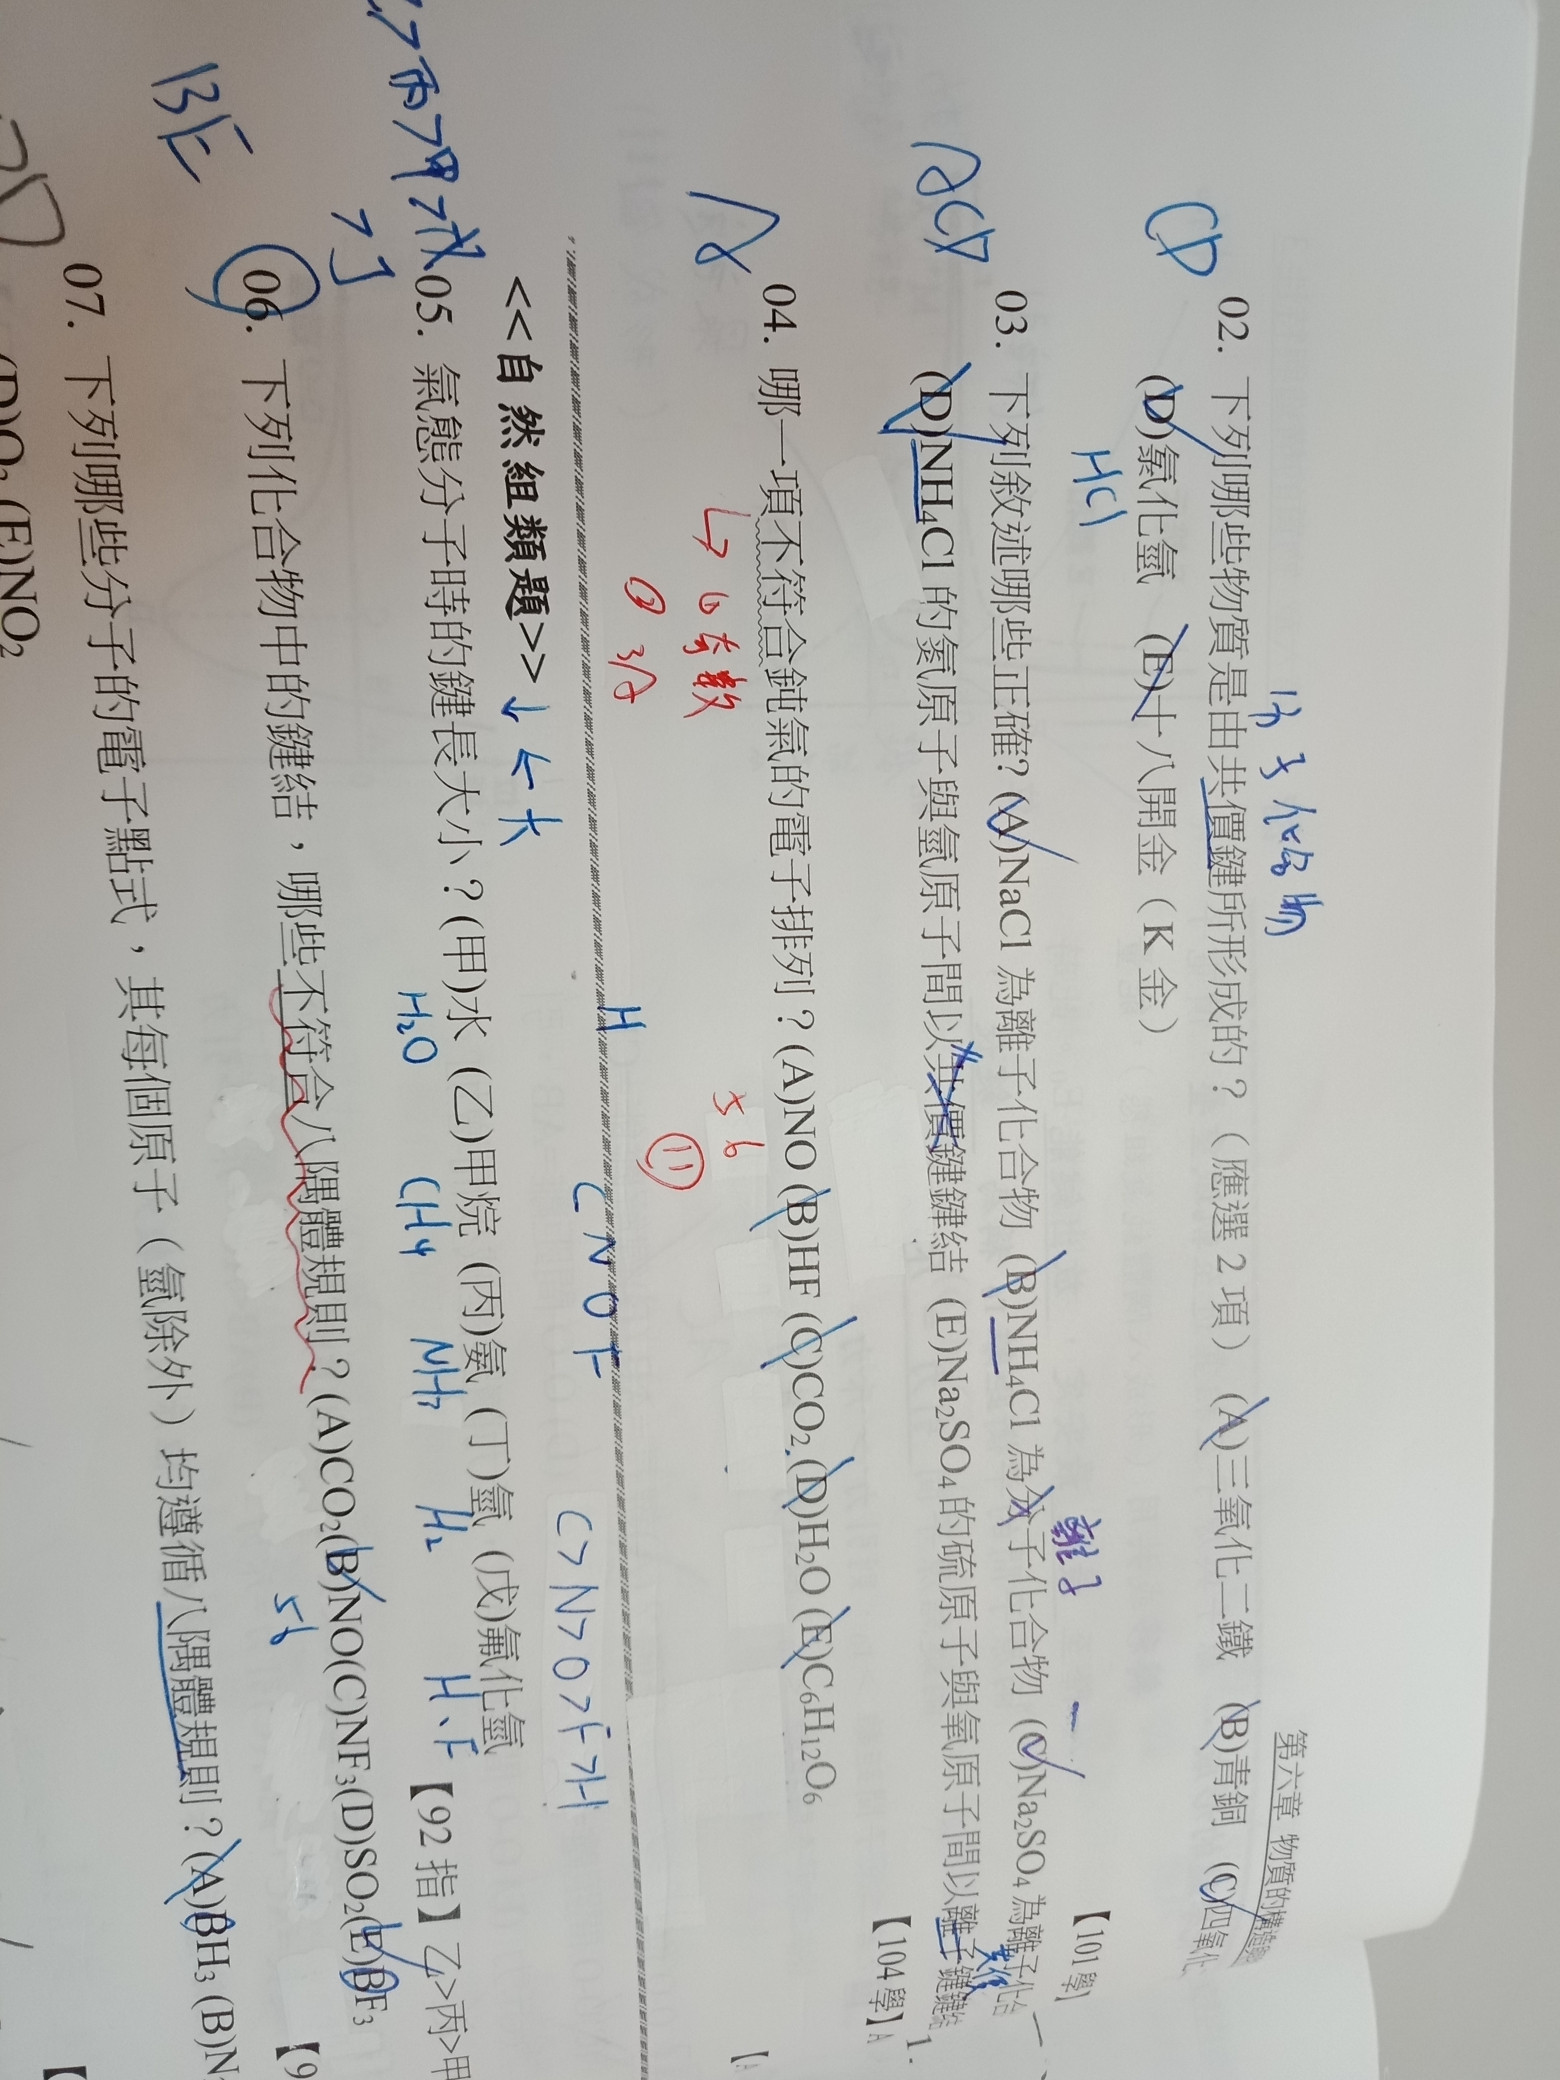 第六章 物質的構造與
分子化合物
CD
02. 下列哪些物質是由共價鍵所形成的？（應選2項） (A)三氧化二鐵 (B)青銅 (C)四氧化
(D)氯化氫 (E)十八開金（K金）
【101學】
HCl
離子
ACD
03. 下列敘述哪些正確？(A)NaCl 為離子化合物 (B)NH₄Cl 為分子化合物 (C)Na₂SO₄為離子化合
(D)NH₄Cl 的氮原子與氫原子間以共價鍵鍵結 (E)Na₂SO₄的硫原子與氧原子間以離子鍵鍵結
1.
【104學】A
A
04. 哪一項不符合鈍氣的電子排列？(A)NO (B)HF (C)CO₂ (D)H₂O (E)C₆H₁₂O₆
5 6
⑪
② 3A
H
C N O F
C>N>O>F>H
<<自然組類題>>
↓ ← 大
>丙>甲>戊
>丁
05. 氣態分子時的鍵長大小？(甲)水 (乙)甲烷 (丙)氨 (丁)氫 (戊)氟化氫
【92指】乙>丙>甲
H₂O CH₄ NH₃ H₂ H、F
BE
06. 下列化合物中的鍵結，哪些不符合八隅體規則？(A)CO₂(B)NO(C)NF₃(D)SO₂(E)BF₃
56
【9
07. 下列哪些分子的電子點式，其每個原子（氫除外）均遵循八隅體規則？(A)BH₃ (B)N
(D)O₃ (E)NO₂